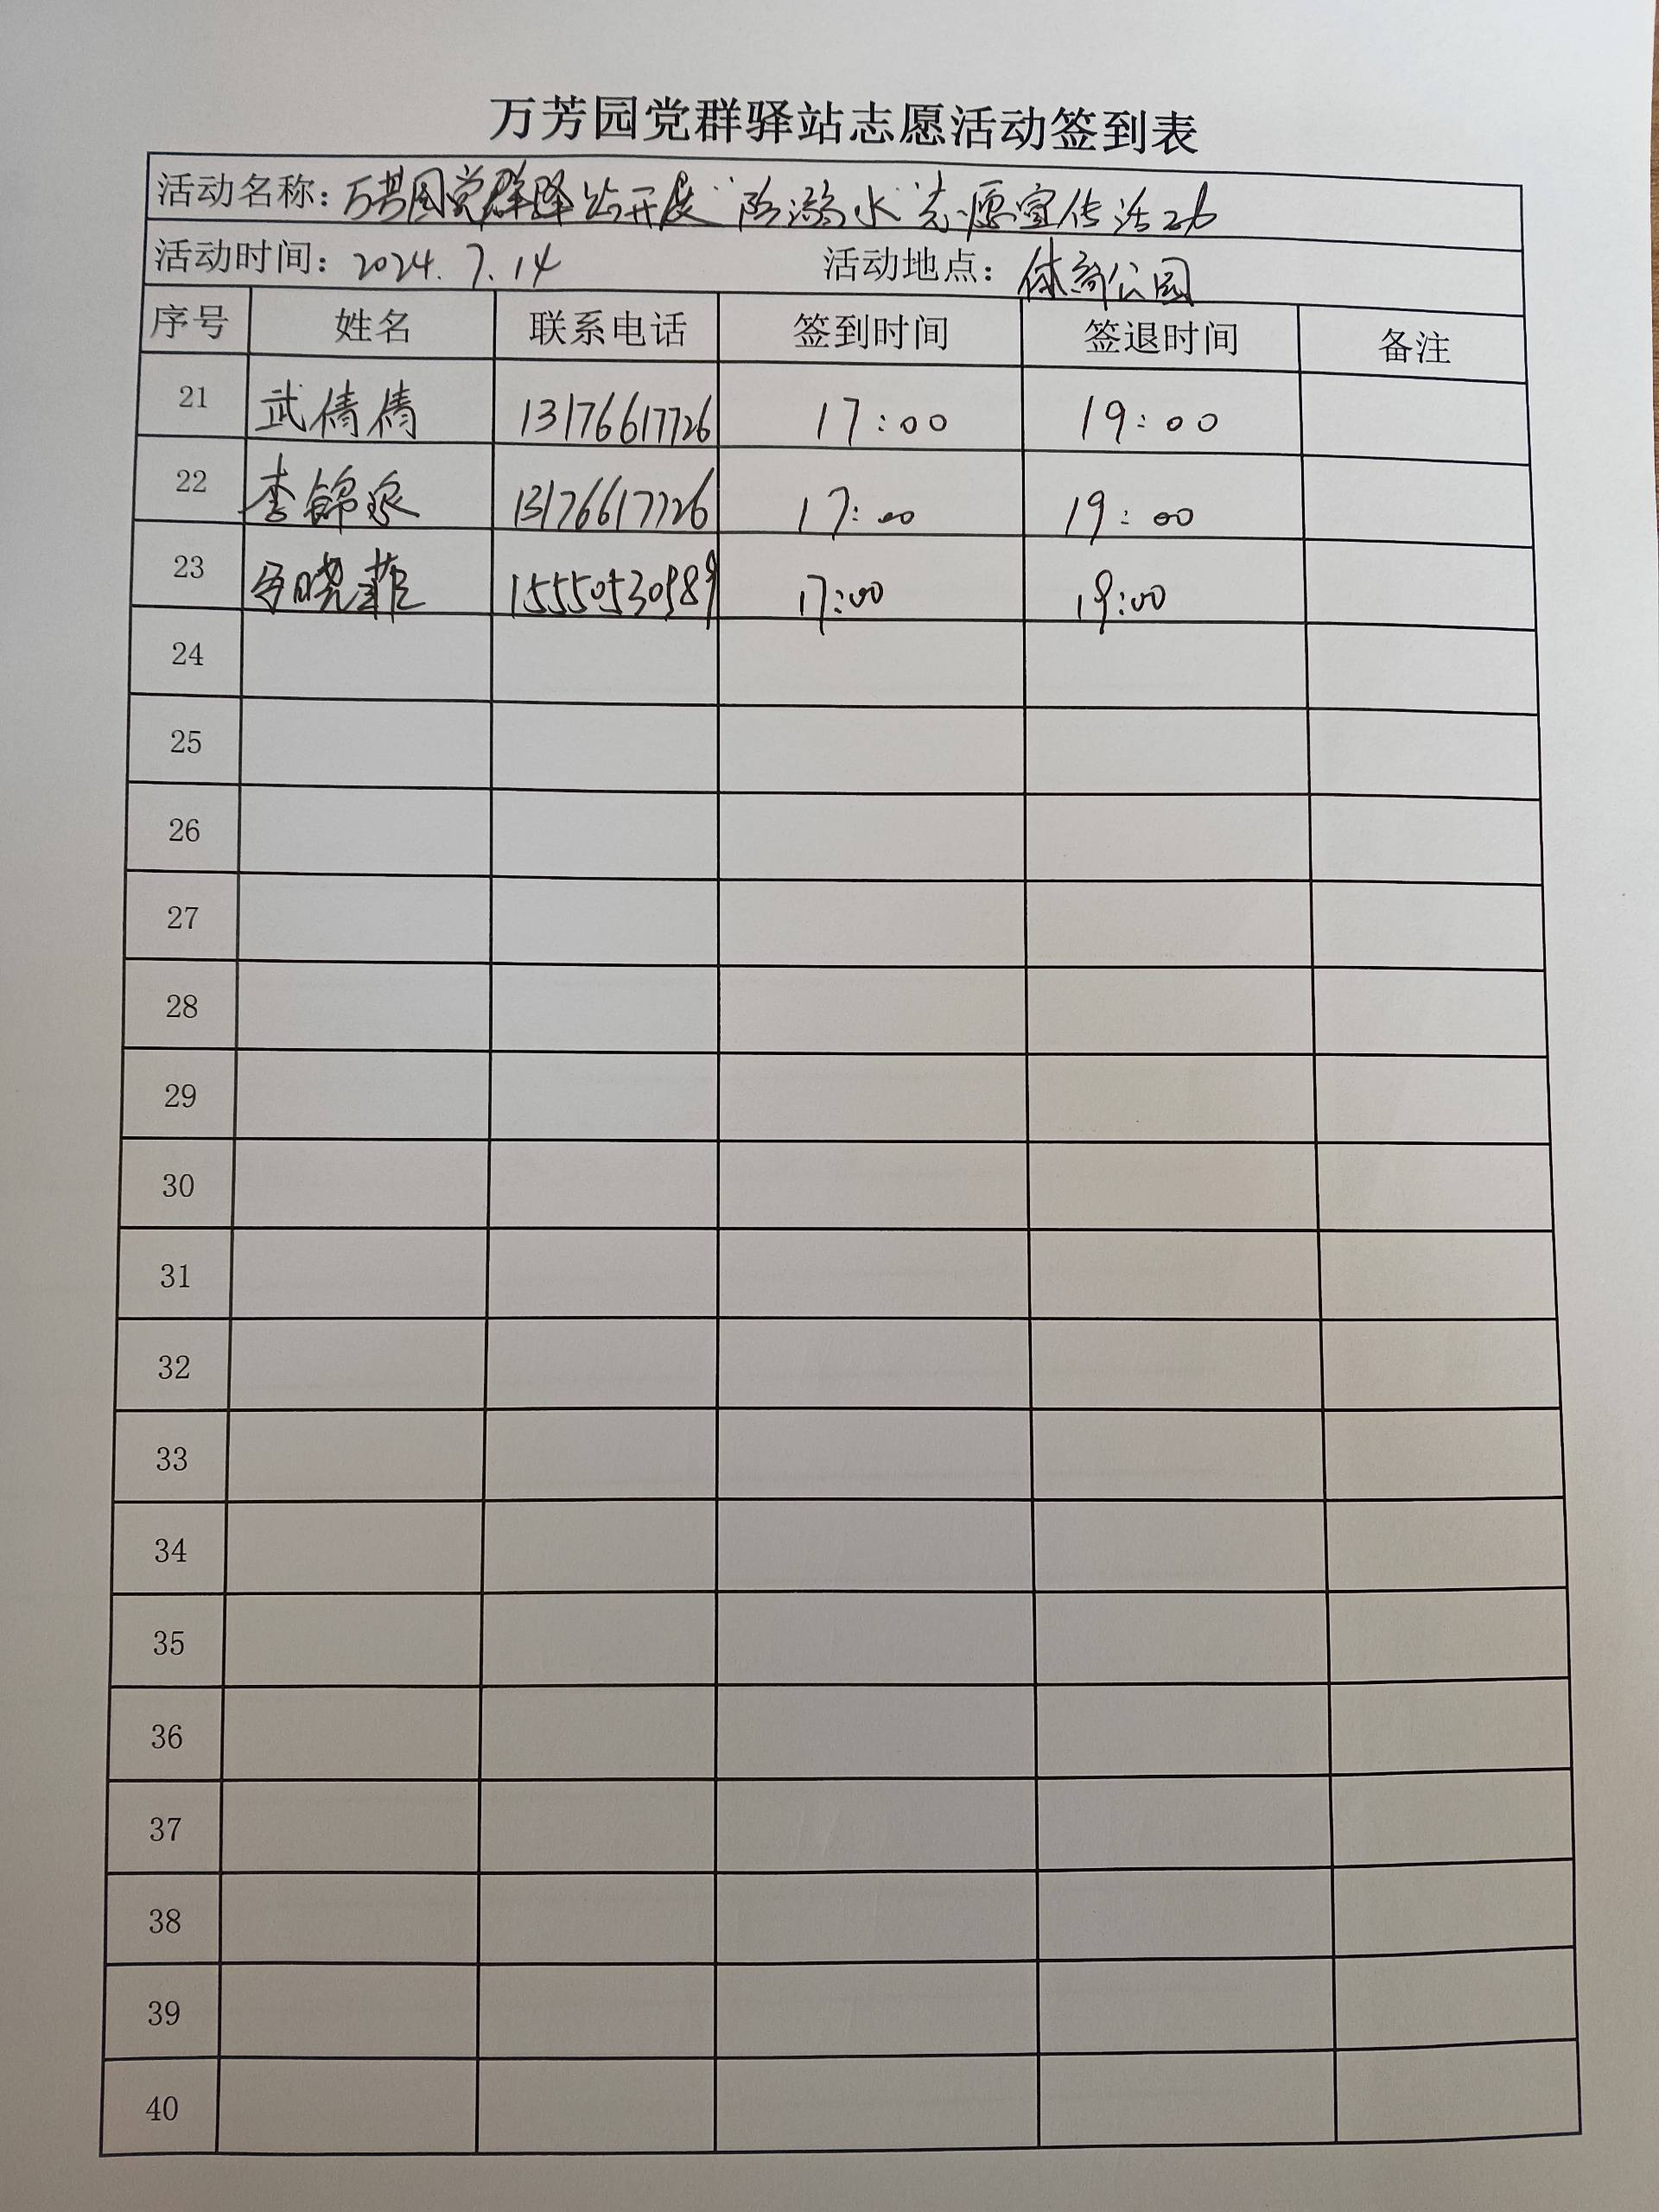 万芳园党群驿站志愿活动签到表
活动名称：万芳园党群驿站开展“防溺水”志愿宣传活动
活动时间：2024.7.14 活动地点：体育公园
序号 姓名 联系电话 签到时间 签退时间 备注
21 武倩倩 13176617726 17:00 19:00
22 李锦 13176617726 17:00 19:00
23 晓菲 17:00 19:00
24
25
26
27
28
29
30
31
32
33
34
35
36
37
38
39
40